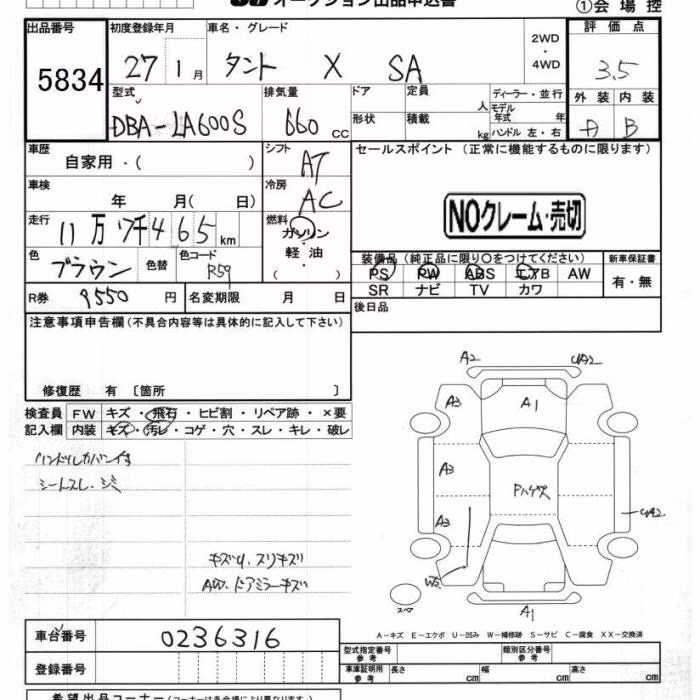 オークション出品申込書
①会場控
出品番号 5834
初度登録年月 27 1月
車名・グレード タント X SA
2WD・4WD
評価点 3.5
型式 DBA-LA600S
排気量 660 cc
ドア 形状
定員 人
積載 kg
ディーラー・並行
モデル年式 年
ハンドル 左・右
外装 A
内装 B
車歴 自家用・( )
シフト AT
セールスポイント (正常に機能するものに限ります)
車検 年 月( 日)
冷房 AC
NOクレーム・売切
走行 11万7千465 km
燃料 ガソリン・軽油 ( )
色 ブラウン 色替
色コード R59
装備品 (純正品に限り○をつけてください)
新車保証書
PS PW ABS エアB AW
有・無
SR ナビ TV カワ
R券 9550 円
名変期限 月 日
後日品
注意事項申告欄 (不具合内容等は具体的に記入して下さい)
修復歴 有 〔箇所 〕
検査員記入欄
FW キズ・飛石・ヒビ割・リペア跡・×要
内装 キズ・汚レ・コゲ・穴・スレ・キレ・破レ
ハンドルカバー付
シートスレ・シミ
キズU、スリキズ
AW、ドアミラーキズ
A2
UA2
A3
A1
A3
Pハゲズ
A3
UA2
W2
スペア
A1
A−キズ E−エクボ U−凹み W−補修跡 S−サビ C−腐食 XX−交換済
車台番号 0236316
型式指定番号 参考
類別区分番号 参考
登録番号
車庫証明用 参考
長さ cm
幅 cm
高さ cm
希望出品コーナー (コーナーは各会場により異なります)